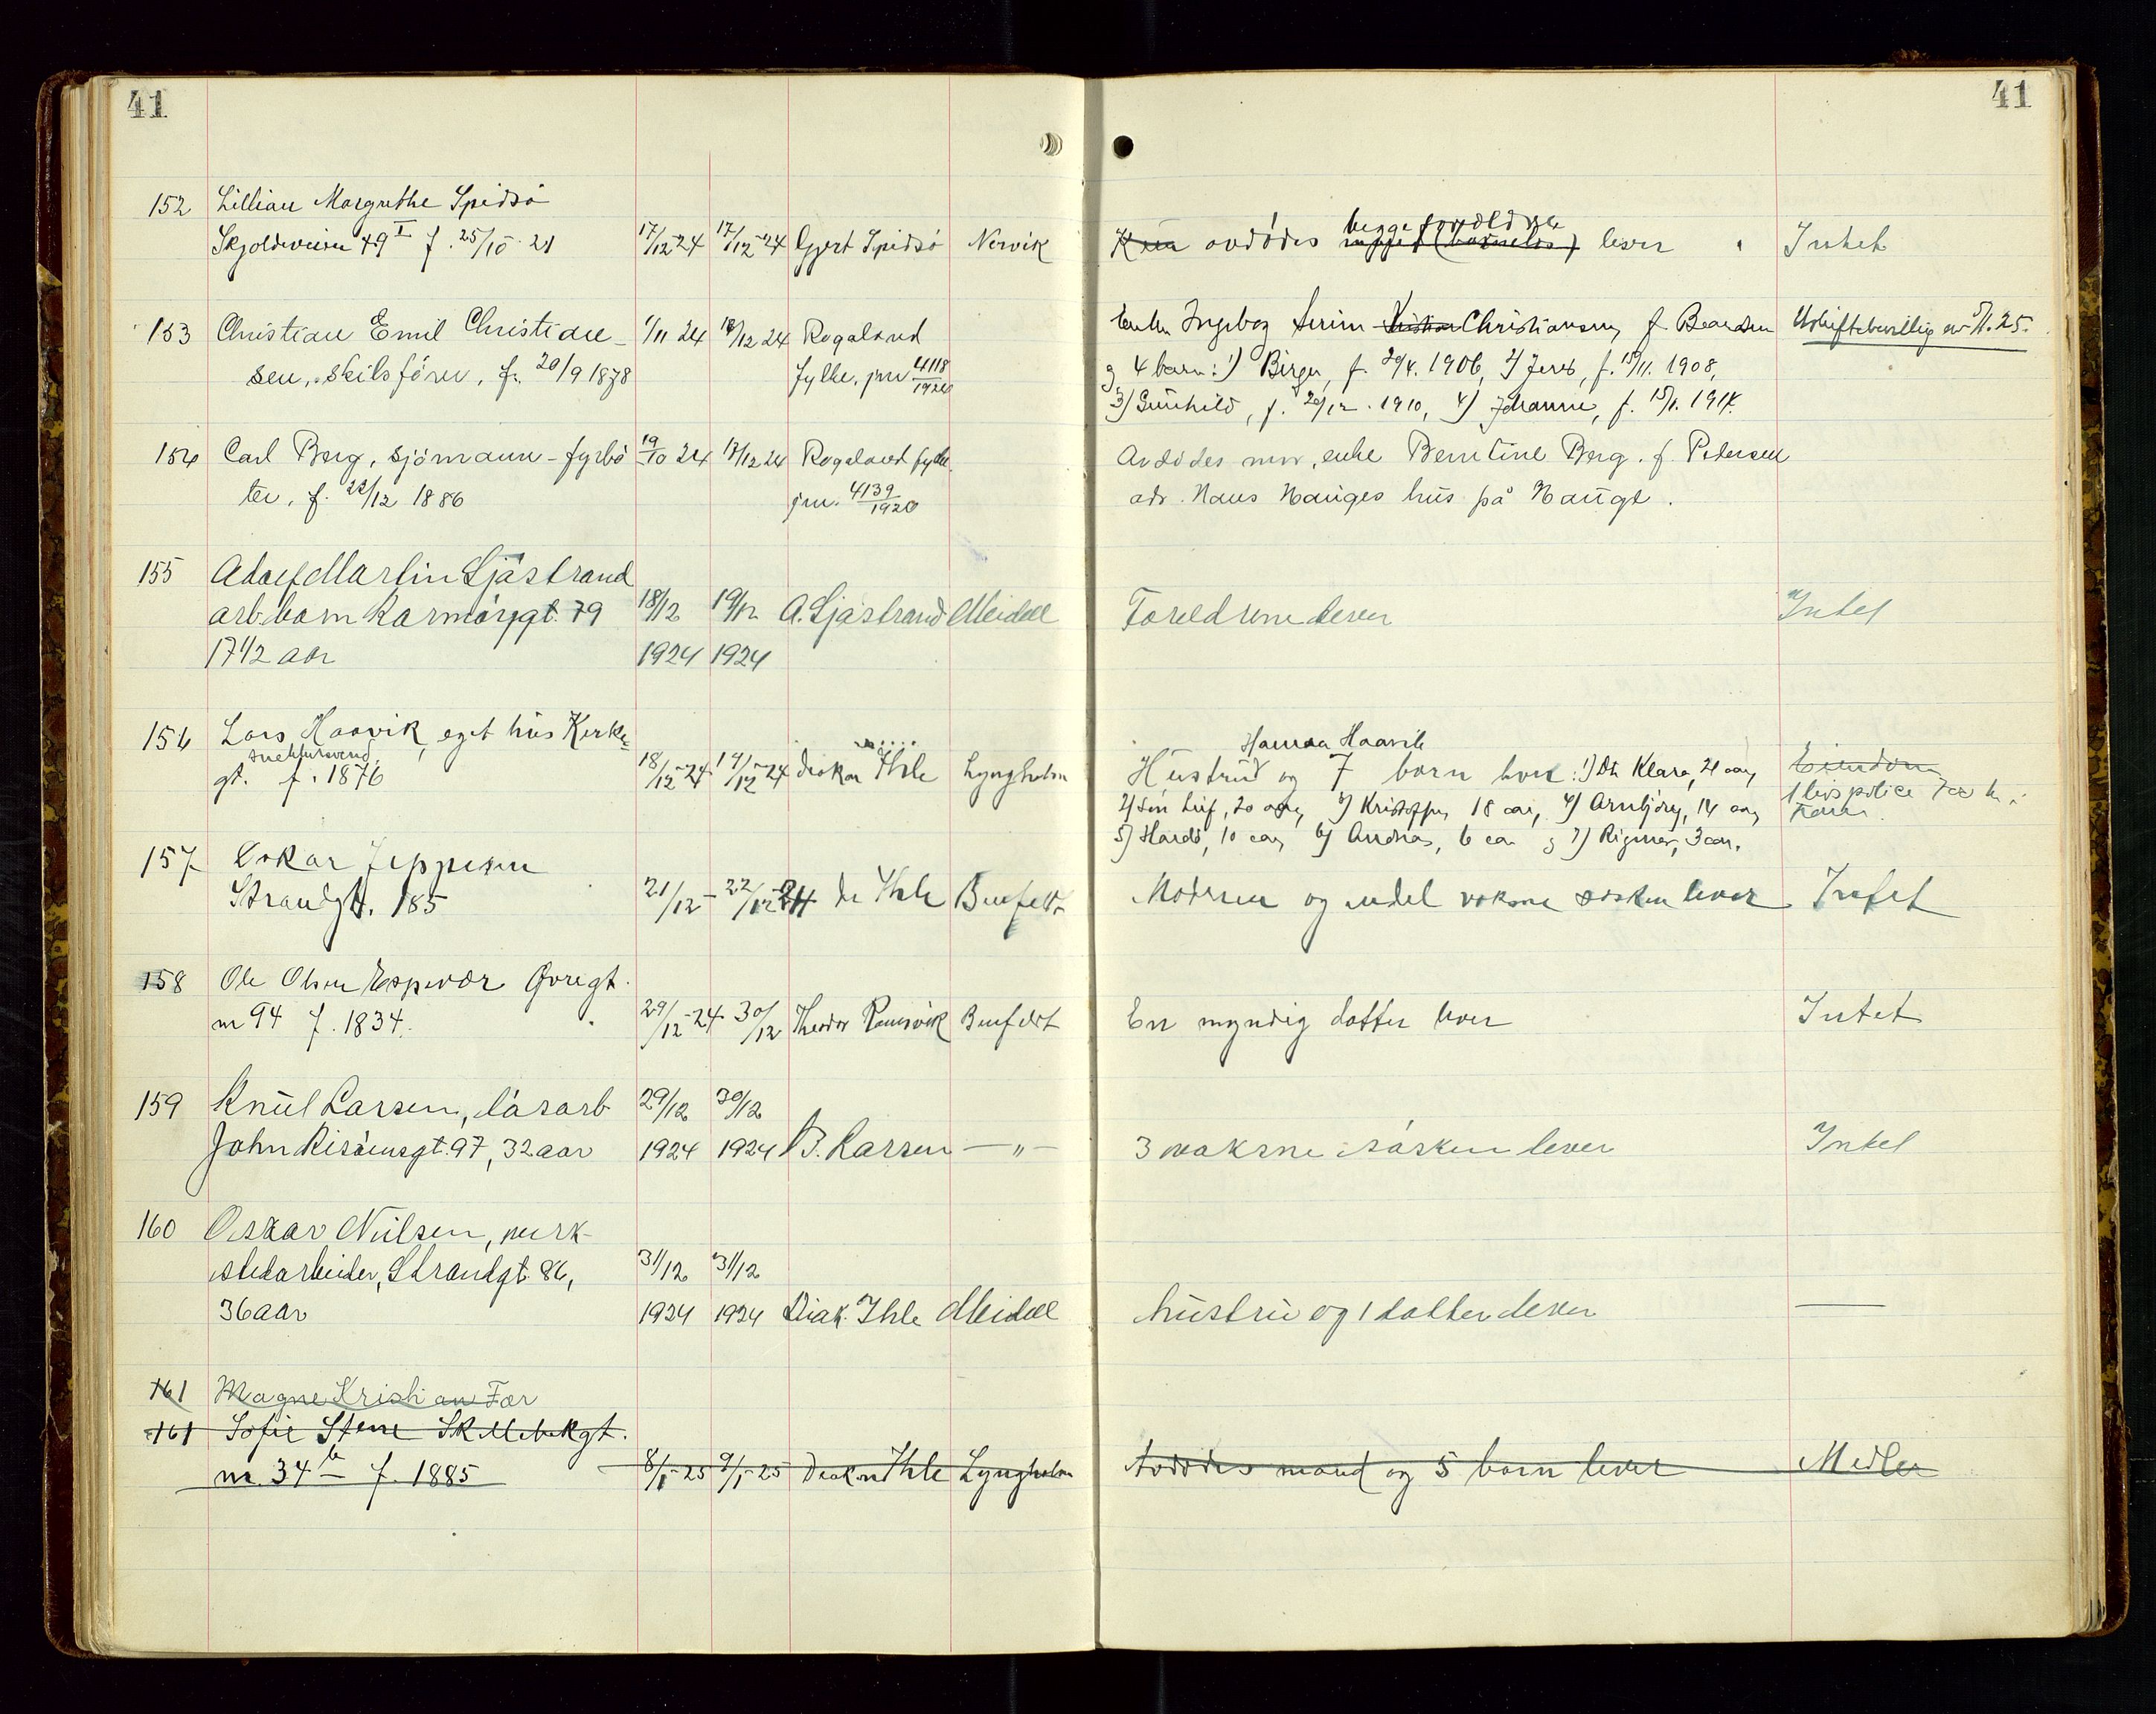 41
41
152 Lillian Margrethe Spidsö
Skjoldveien 49 I f. 25/10 21 17/12-24 17/12-24 Gjert Spidsö Nervik avdödes begge forældre lever Intet
153 Christian Emil Christian- 1/11 24 18/12 24 Rogaland Enken Ingeborg Christiansen, f. Uskiftebevillig av
sen, skibsförer, f. 20/9 1878 fylke. jnr 4118/1924 og 4 barn: 1) Birger, f. 29/4. 1906, 2) f. 15/11. 1908,
3) Gunhild, f. 20/12. 1910, 4) Johanne, f. 15/1. 1914.
154 Carl Berg, sjömann-fyrbö- 19/10 24 17/12 24 Rogaland fylke Avdödes mor, enke Berntine Berg. f. Petersen
ter, f. 22/12 1886 jnr. 4139/1924 adr. Hans Hauges hus på Hauge.
155 Adolf Martin Sjöstrand
arb. barn Karmöygt. 79 18/12 19/12 A. Sjöstrand Meidell Foreldrene lever Intet
17 1/2 aar 1924 1924
156 Lars Haavik, eget hus Kirke-
snekkersvend Hanna Haavik
gt. f. 1876 18/12-24 19/12-24 diakon Ihle Lyngholm Hustru og 7 barn lever: 1) Dtr Klara, 21 aar, Eiendom
2) Sön Leif, 20 aar, 3) Kristoffer, 18 aar, 4) Arnbjörg, 14 aar, 1 livspolice
5) Harald, 10 aar, 6) Andreas, 6 aar og 7) Rigmor, 3 aar.
157 Oskar Jeppesen
Strandgt. 185 21/12- 22/12-24 di Ihle Benfeldt Moderen og endel voksne söskén lever Intet
158 Ole Olsen Espevær Övregt.
nr 94 f. 1834. 29/12-24 30/12 Theodor Ramsvik Benfeldt En myndig datter lever Intet
159 Knut Larsen, lösarb 29/12 30/12
John Risöensgt. 97, 32 aar 1924 1924 B. Larsen —"— 3 voksne sösken lever Intet
160 Oskar Nielsen, verk-
stedarbeider, Strandgt. 86, 31/12 31/12
36 aar 1924 1924 Diak. Ihle Meidell hustru og 1 datter lever —
161 Magne Kristian Før
161 Sofie Stene Skillebekgt.
nr. 34 b f. 1885 8/1-25 9/1-25 Diakon Ihle Lyngholm Avdödes mand og 5 barn lever Midler